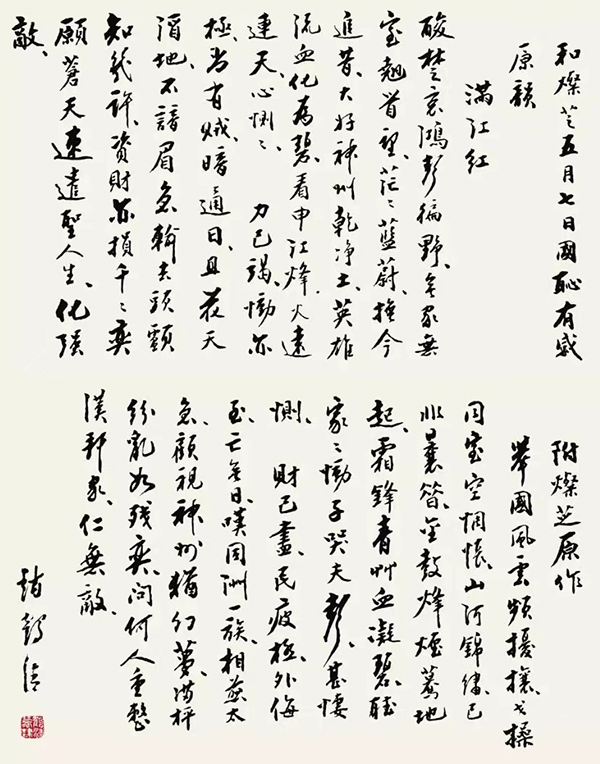 和燦芝五月七日國恥有感
原韻
滿江紅
酸楚哀鴻聲徧野、無家無
室、翹首望、茫々藍蔚、撫今
追昔、大好神州乾净土、英雄
流血化為碧、看申江烽火遠
連天、心惻々 力已竭、慟亦
極、尚有賊、暗通日、且 天
地、不諳眉急、輸去頭顱
知幾許、資財亦損千々奕
願蒼天速遣聖人生、化強
敵、
附燦芝原作
舉國風雲頻擾攘、戈操
同室、空惆悵、山河錦繡、已
非曩昔、金鼓烽煙驀地
起、霜鋒青草血凝碧、聽
家々慟子哭夫聲、甚悽
惻、 財已盡、民疲極、外侮
至、亡無日、嘆同洲一族、相煎太
急、顧視神州猶幻夢、滿枰
紛亂如殘奕、問何人重整
漢邦家、仁無敵、